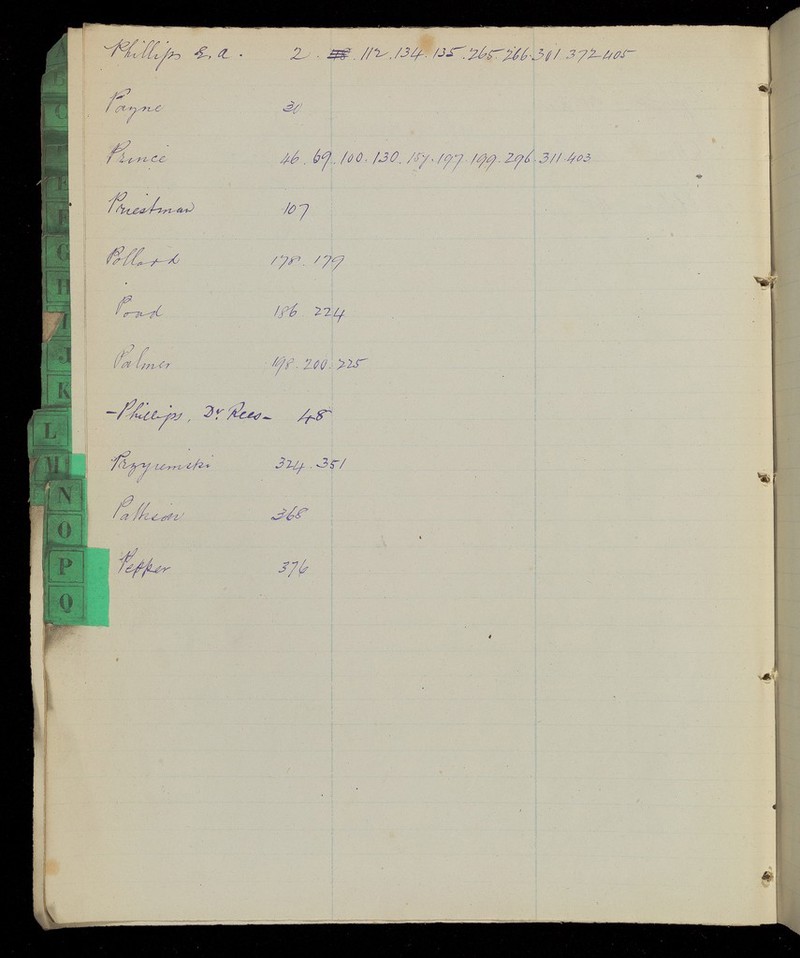 Phillips E. A. 2. 112. 134. 135. 265. 266. 301 372 405
Payne 30
Prince 46. 69. 100. 130. 157. 197. 199. 296. 311. 403
Priestman 107
Pollard 178. 179
Poad 186. 224
Palmer 198. 200. 225
- Phillips, Dr Rees - 48
324. 351
Pattison 368
Pepper 376
G
H
I
J
K
L
M
N
O
P
Q